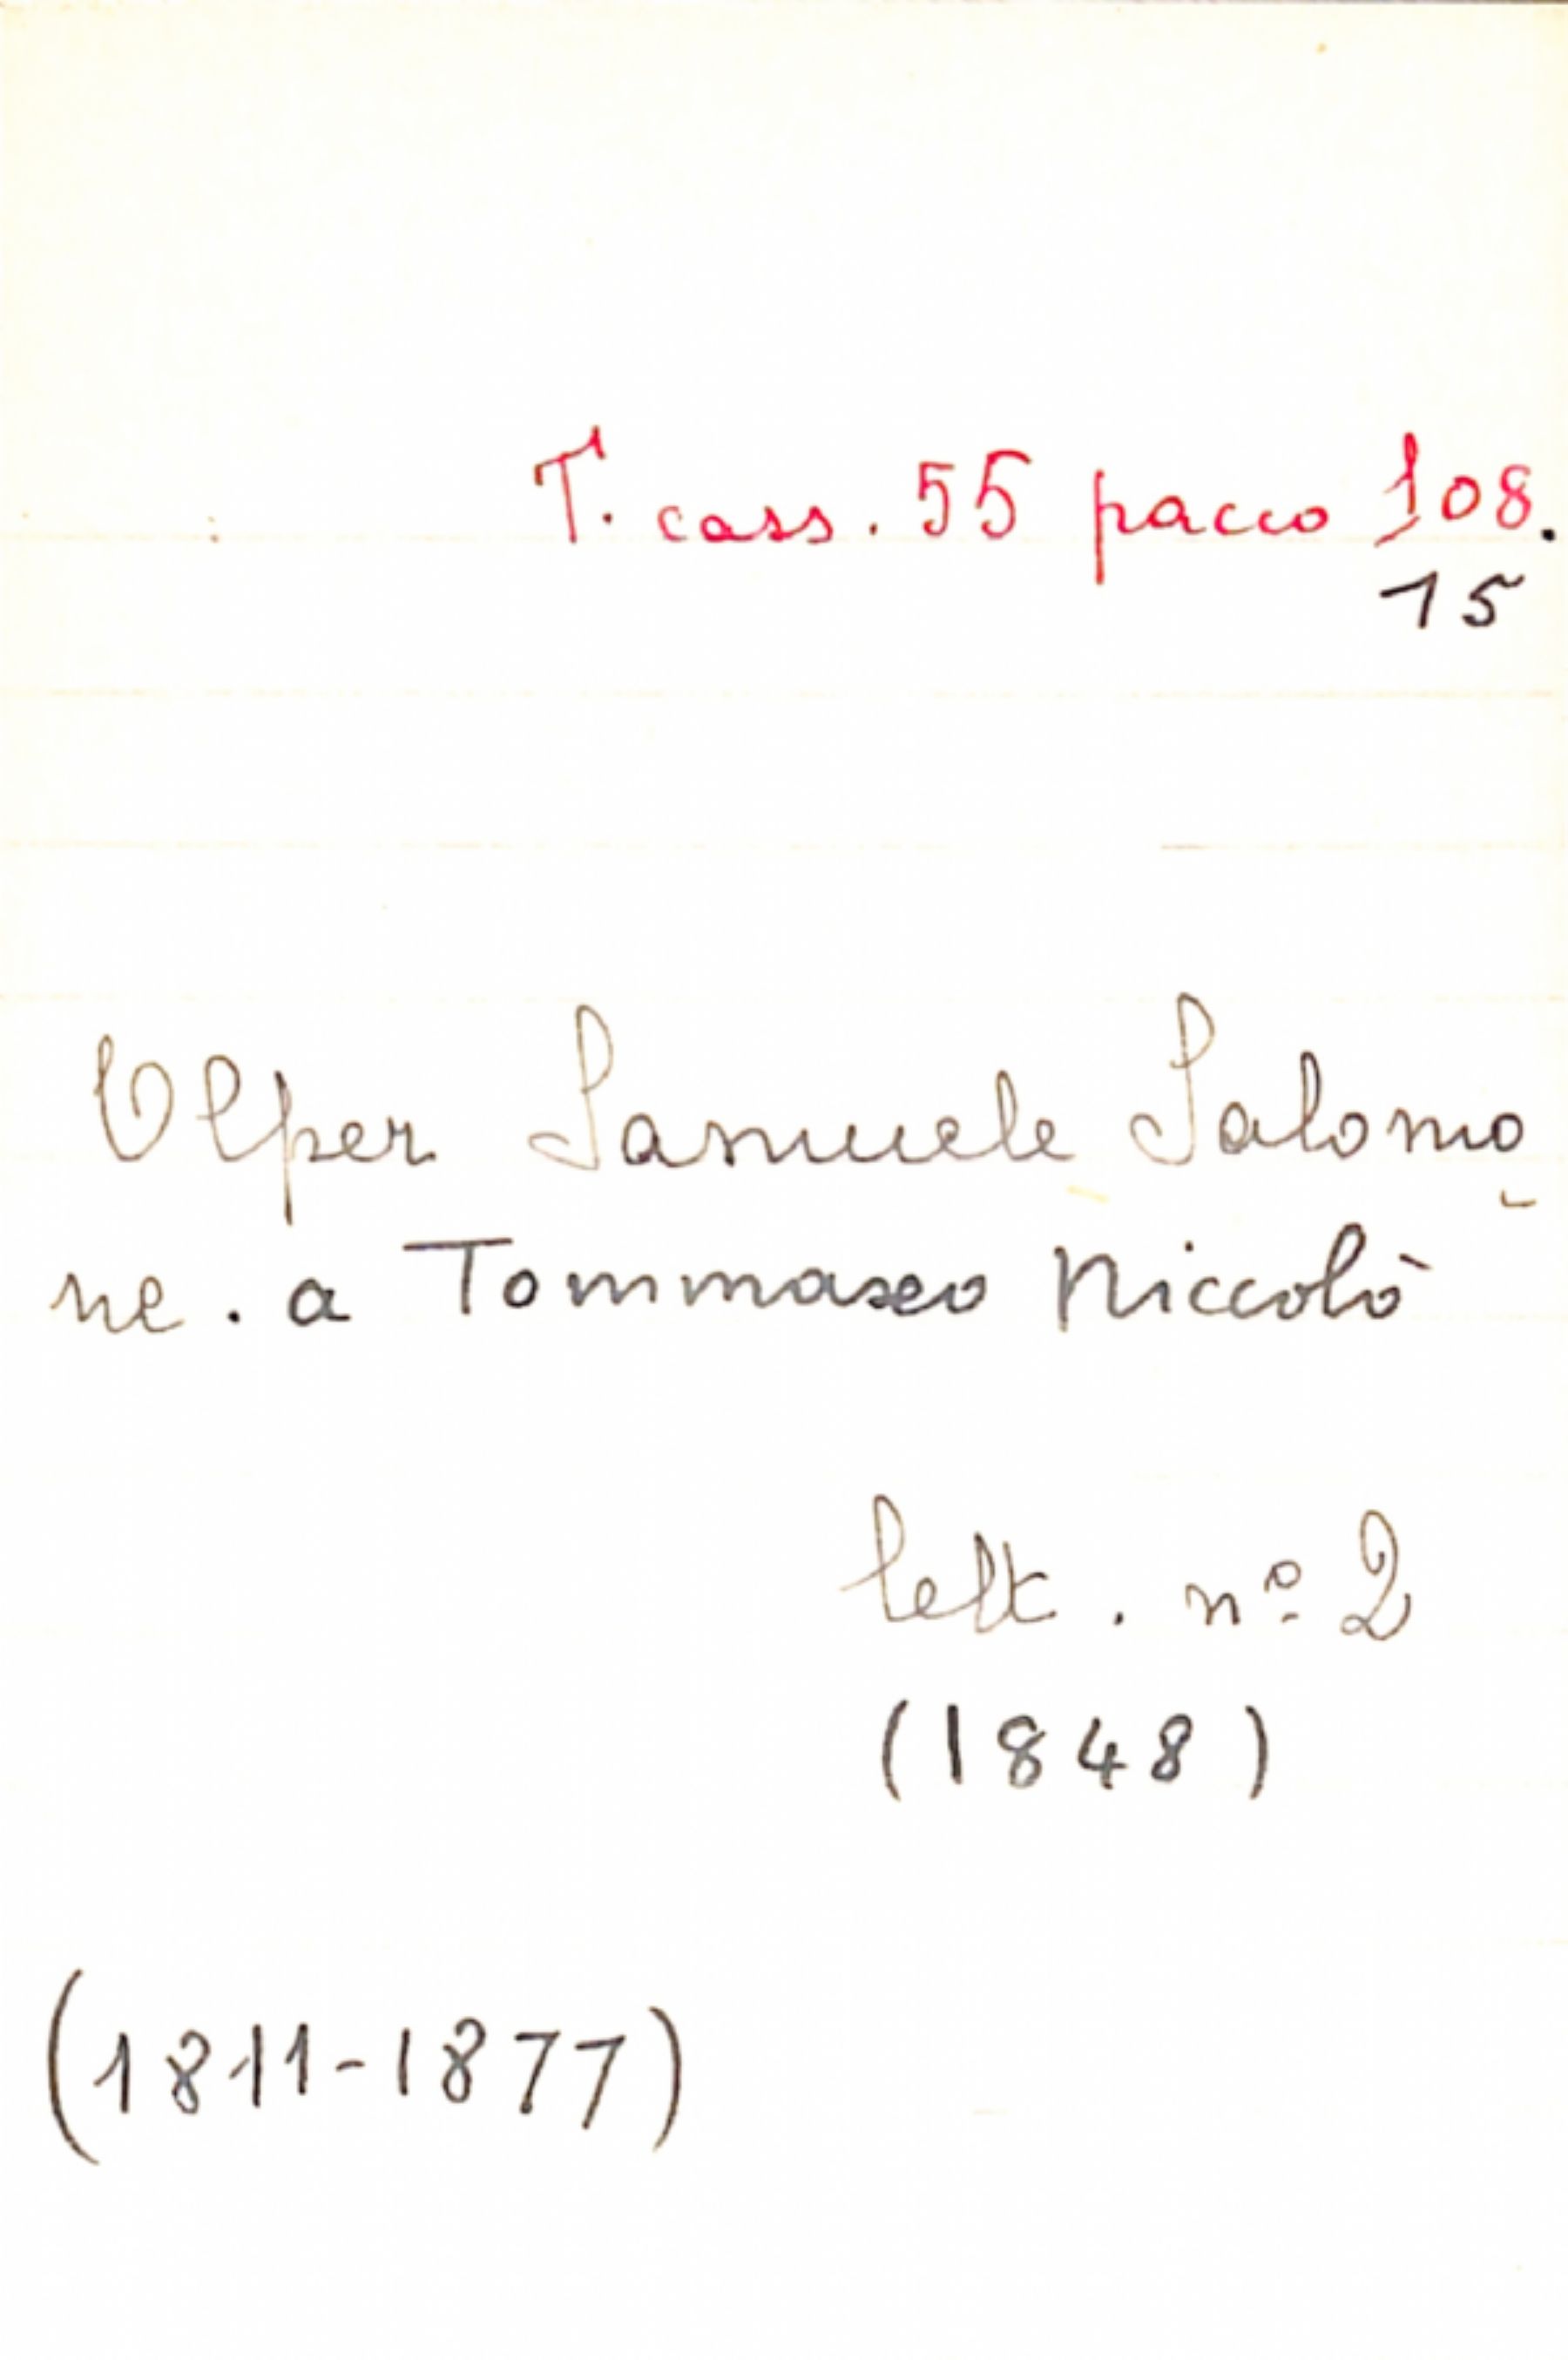 T. cass. 55 pacco 108.
15
Olper Samuele Salomo
ne. a Tommaseo Niccolò
lett. nº 2
(1848)
(1811-1877)